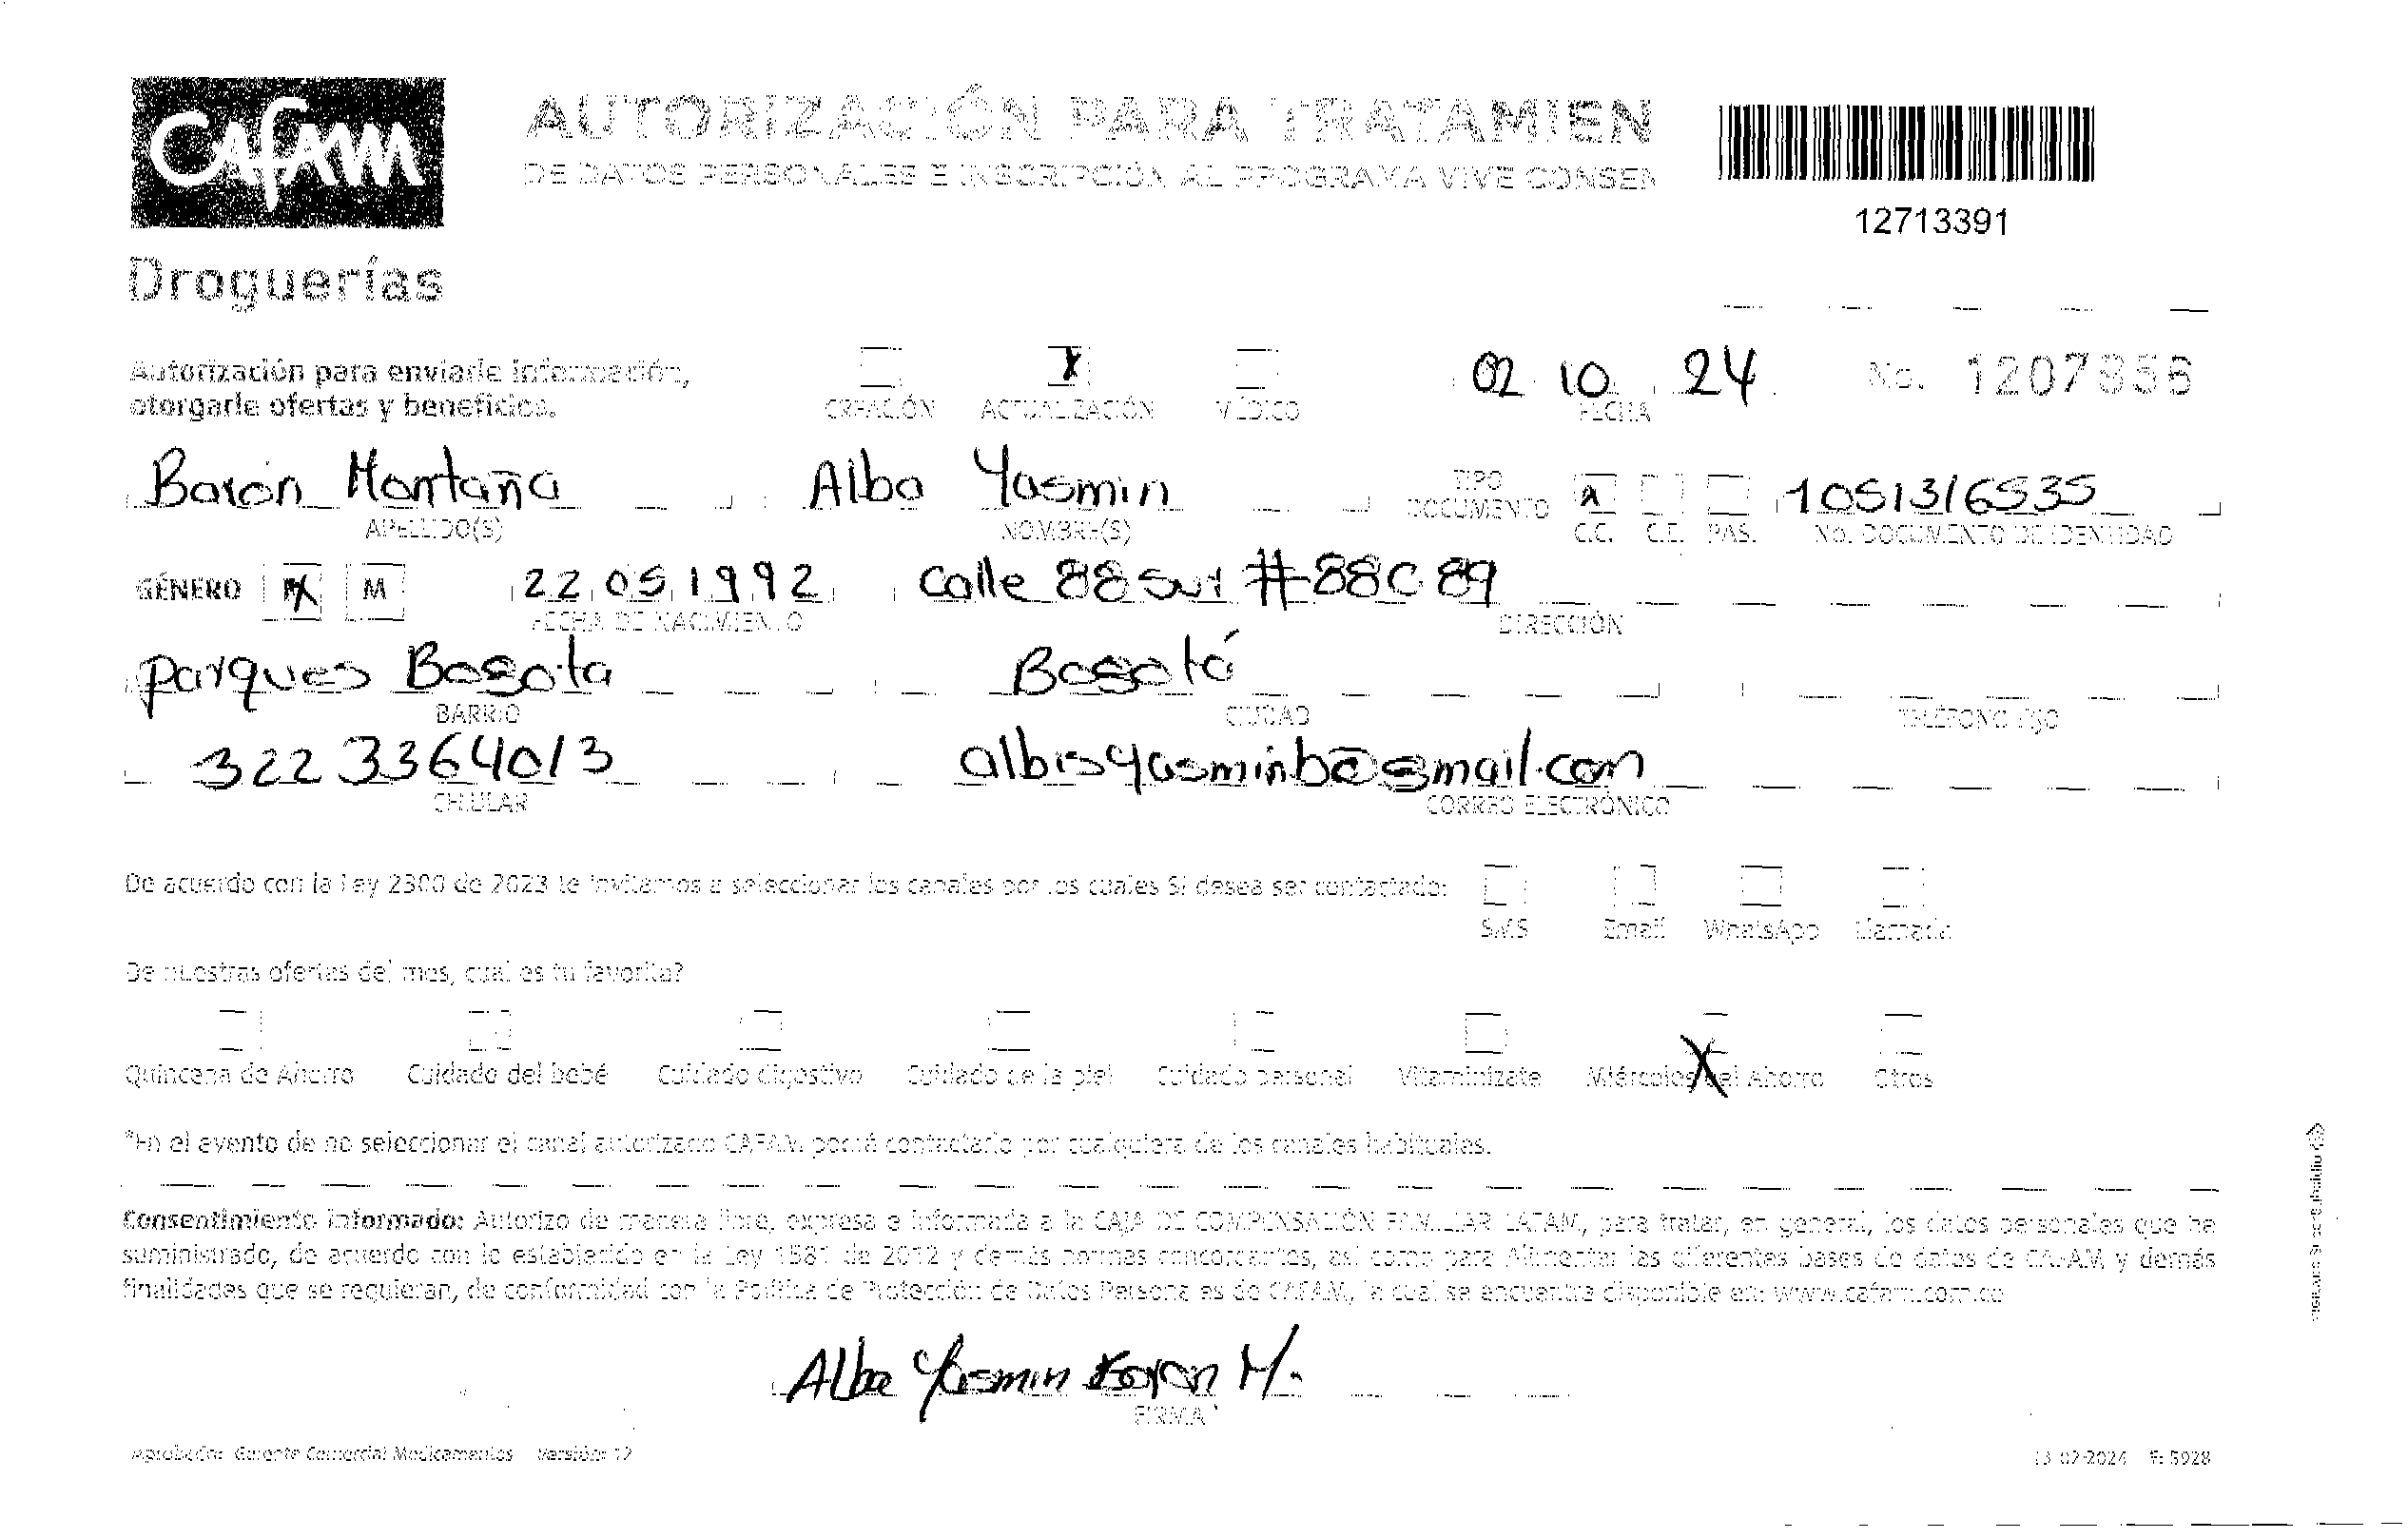 cafam
AUTORIZACIÓN PARA TRATAMIEN
DE DATOS PERSONALES E INSCRIPCIÓN AL PROGRAMA VIVE CONSEN
12713391
Droguerías
Autorización para enviarle información,
otorgarle ofertas y beneficios.
CREACIÓN X ACTUALIZACIÓN MÉDICO
02 10 24
FECHA
No. 1207856
Barón Montaña Alba Yasmin
APELLIDO(S) NOMBRE(S)
TIPO DOCUMENTO X C.C. C.E. PAS.
1051316535
No. DOCUMENTO DE IDENTIDAD
GÉNERO X M 22 05 1992 Calle 88 Sur #88C 89
FECHA DE NACIMIENTO DIRECCIÓN
Parques Bogota Bogotá
BARRIO CIUDAD TELÉFONO FIJO
322 3364013 albisyasminb@gmail.com
CELULAR CORREO ELECTRÓNICO
De acuerdo con la Ley 2300 de 2023 te invitamos a seleccionar los canales por los cuales SI desea ser contactado:
SMS Email WhatsApp Llamada
De nuestras ofertas del mes, cual es tu favorita?
Quincena de Ahorro Cuidado del bebé Cuidado digestivo Cuidado de la piel Cuidado personal Vitamínizate X Miércoles del Ahorro Otros
*En el evento de no seleccionar el canal autorizado CAFAM podrá contactarlo por cualquiera de los canales habituales.
Consentimiento informado: Autorizo de manera libre, expresa e informada a la CAJA DE COMPENSACIÓN FAMILIAR CAFAM, para tratar, en general, los datos personales que he
suministrado, de acuerdo con lo establecido en la Ley 1581 de 2012 y demás normas concordantes, así como para Alimentar las diferentes bases de datos de CAFAM y demás
finalidades que se requieran, de conformidad con la Política de Protección de Datos Personales de CAFAM, la cual se encuentra disponible en: www.cafam.com.co
Alba Yasmin Baron M.
FIRMA
Aprobador: Gerente Comercial Medicamentos Versión: 12
13-02-2024 F: 5928